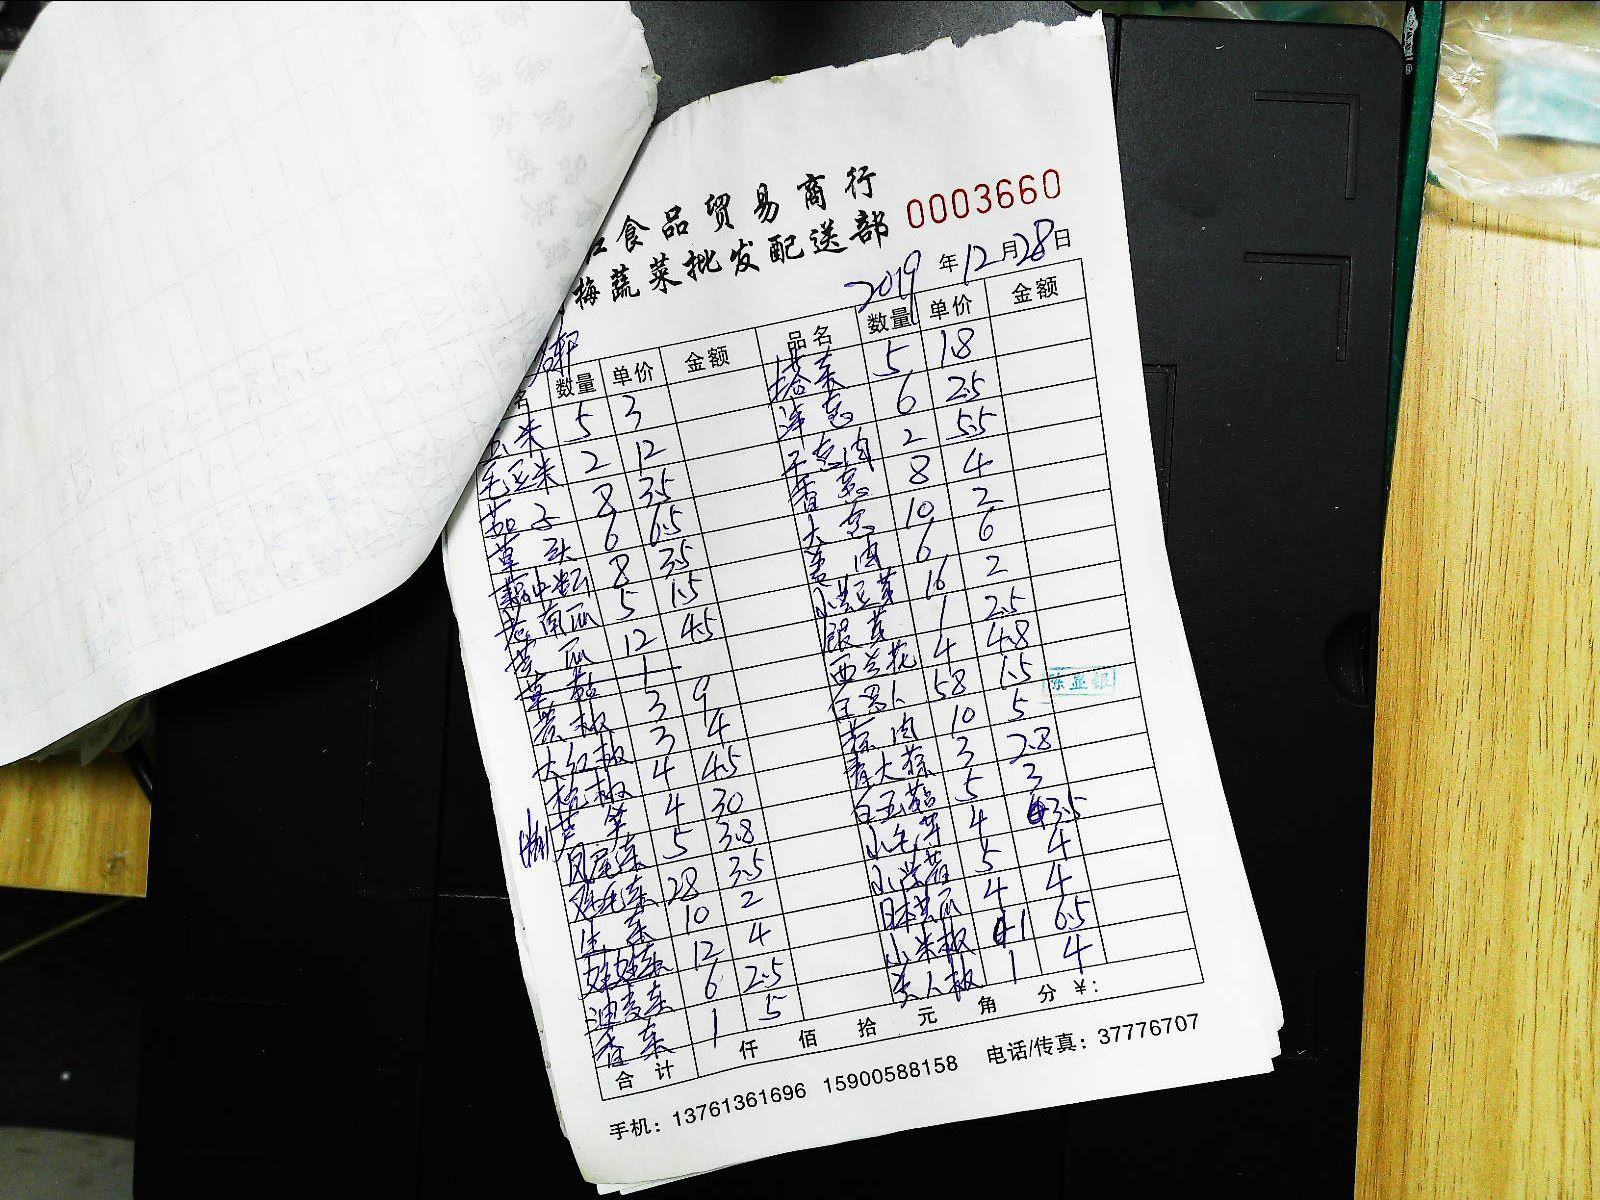 食品贸易商行
梅蔬菜批发配送部 0003660
2019年12月28日
名 数量 单价 金额 品名 数量 单价 金额
玉米 5 3 塔菜 5 1.8
毛豆米 2 12 洋葱 6 2.5
茄子 8 3.5 干葱肉 2 5.5
草头 6 6.5 香葱 8 4
8 3.5 大葱 10 2
老南瓜 5 1.5 姜肉 6 6
黄瓜 12 4.5 小黄豆芽 16 2
草菇 1 银芽 1 2.5
黄椒 3 9 西兰花 4 4.8
大红椒 3 4 白萝卜 58 1.5
杭椒 4 4.5 陈亚银
芦笋 4 30 蒜肉 10 5
凤尾菜 5 3.8 青大蒜 3 2.8
鸡毛菜 28 3.5 白玉菇 5 3
生菜 10 2 小毛芋 4 3.5
娃娃菜 12 4 5 4
油麦菜 6 2.5 日本黄瓜 4 4
香菜 1 5 小米椒 1 6.5
美人椒 1 4
合计 仟 佰 拾 元 角 分 ¥:
手机：13761361696 15900588158 电话/传真：37776707